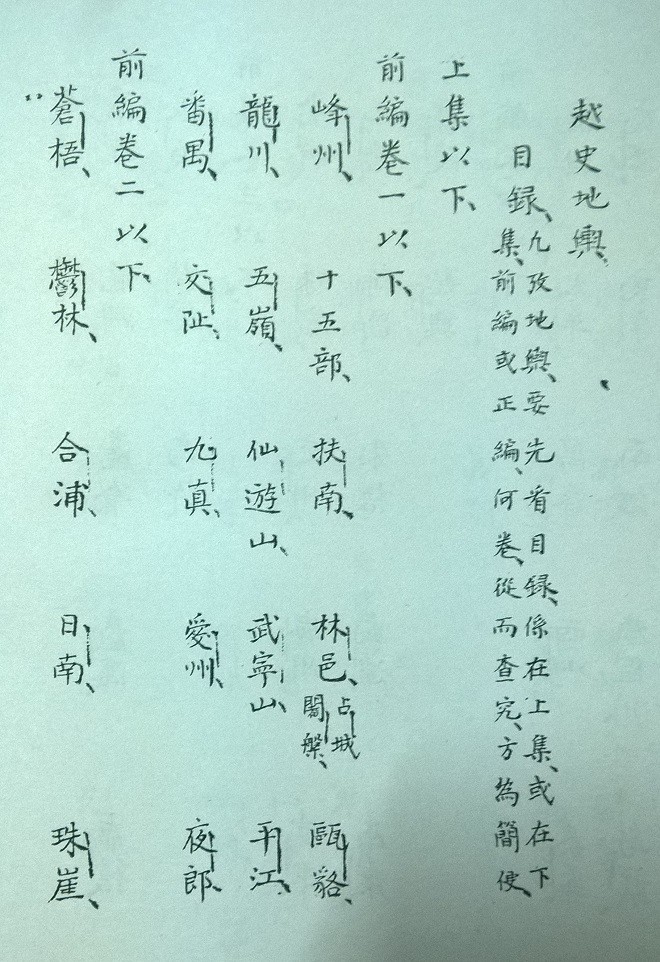 越史地輿
目録、九攷地輿、要先看目録、係在上集、或在下
集、前編或正編、何卷、從而查究、方為簡便、
上集以下、
前編卷一以下、
峰州、 十五部、 扶南、 林邑、占城闍槃、 甌貉、
龍川、 五嶺、 仙遊山、 武寧山、 平江、
番禺、 交阯、 九真、 愛州、 夜郎、
前編卷二以下、
蒼梧、 鬱林、 合浦、 日南、 珠崖、